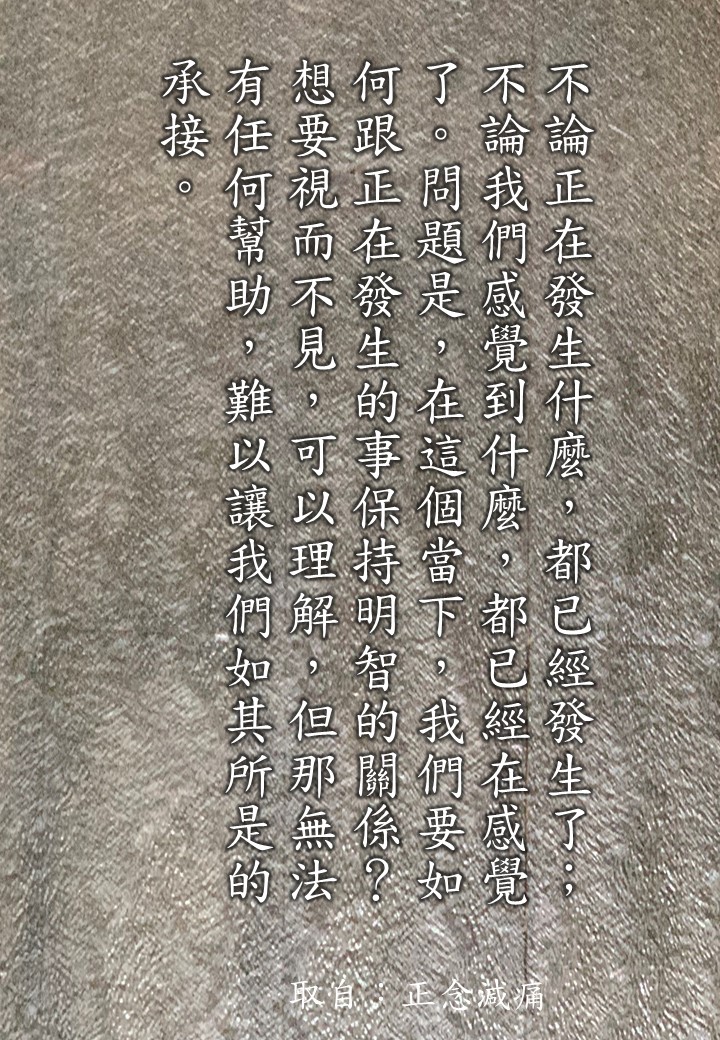 不論正在發生什麼，都已經發生了；
不論我們感覺到什麼，都已經在感覺
了。問題是，在這個當下，我們要如
何跟正在發生的事保持明智的關係？
想要視而不見，可以理解，但那無法
有任何幫助，難以讓我們如其所是的
承接。
取自：正念減痛